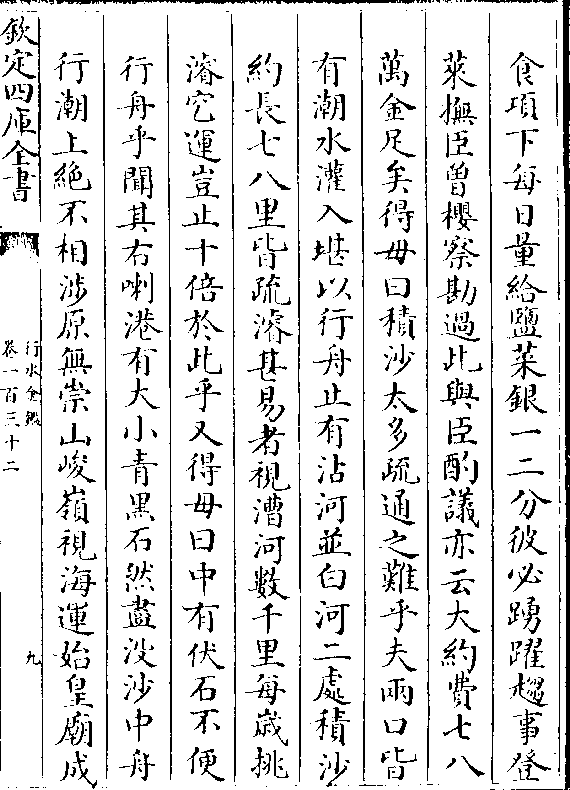 食項下每日量給鹽菜銀一二分彼必踴躍趨事登
萊撫臣曽櫻察勘過此與臣酌議亦云大約費七八
萬金足矣得毋曰積沙太多疏通之難乎夫兩口皆
有潮水灌入堪以行舟止有沽河並白河二處積沙
約長七八里皆疏濬甚易者視漕河數千里每嵗挑
濬空運豈止十倍於此乎又得毋曰中有伏石不便
行舟乎聞其右喇港有大小青黒石然盡没沙中舟
行潮上絶不相涉原無崇山峻嶺視海運始皇廟成
欽定四庫全書
行水金鑑
卷一百三十二
九